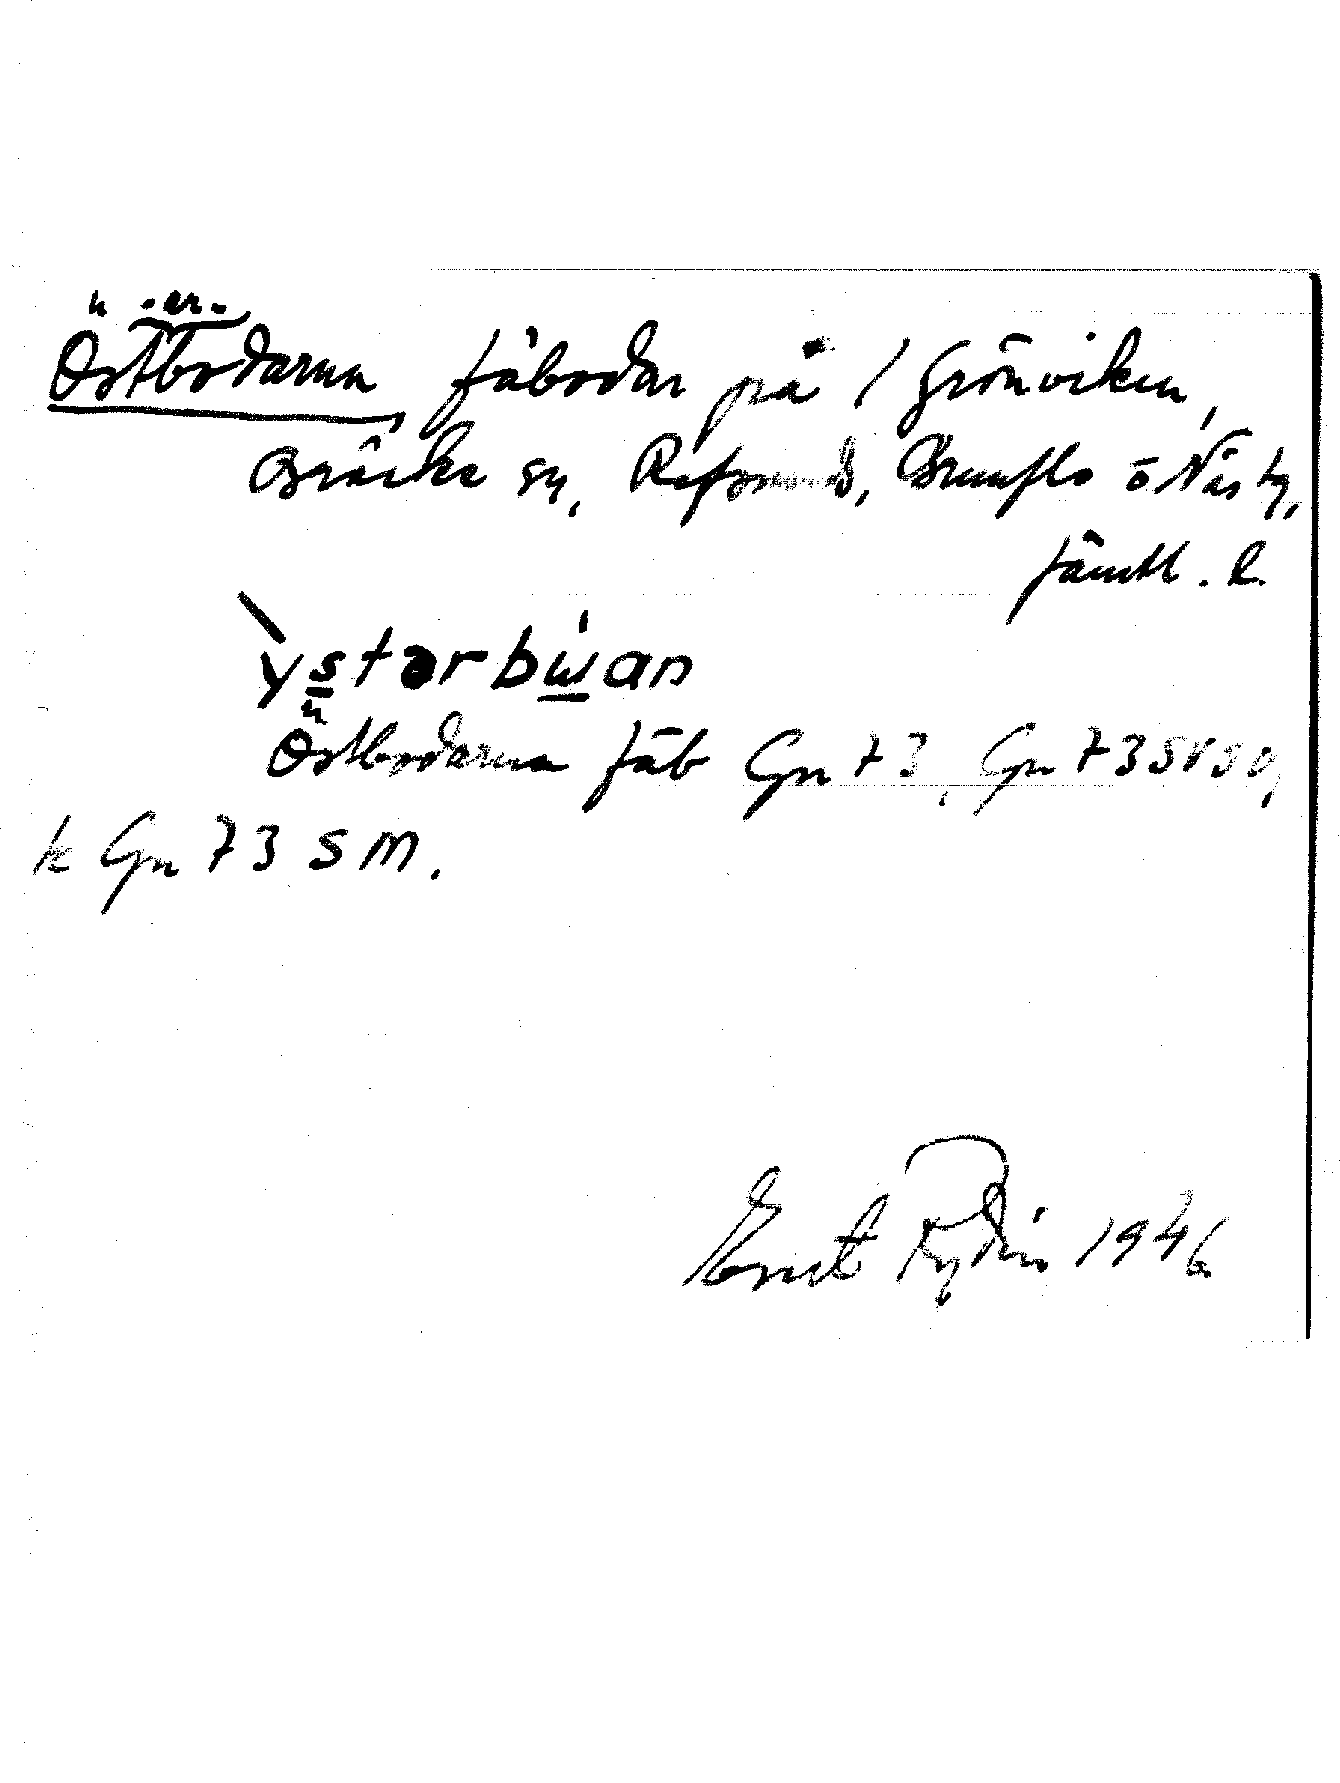 u -er-
Östbodarna fäbodar på / Grönviken,
Bräcke sn, Refsunds, Brunflo o Näs tg,
Jämtl. l.
ystərbu̍an
u
Östbodarna fäb Gn 73, Gn 73 SVSO,
k Gn 73 S M.
Ernst Rydin 1946